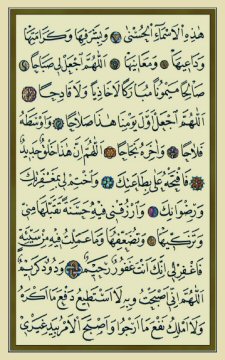 هٰذِهِ الْاَسْمَاءِ الْحُسْنٰى وَبِشَرَفِهَا وَكَرَامَتِهَا
وَمَعَانِيهَا اَللّٰهُمَّ اجْعَلْ لِي صَبَاحًا
صَالِحًا مَيْمُونًا مُبَارَكًا لَا خَازِيًا وَلَا فَادِحًا
اَللّٰهُمَّ اجْعَلْ اَوَّلَ يَوْمِنَا هٰذَا صَلَاحًا وَاَوْسَطَهُ
فَلَاحًا وَاٰخِرَهُ نَجَاحًا اَللّٰهُمَّ اِنَّ هٰذَا خَلْقٌ جَدِيدٌ
فَافْتَحْهُ عَلَيَّ بِطَاعَتِكَ وَاخْتِمْ لِي بِمَغْفِرَتِكَ
وَرِضْوَانِكَ وَارْزُقْنِي فِيهِ حَسَنَةً تَقَبَّلْهَا مِنِّي
وَتُزَكِّيهَا وَتُضَعِّفُهَا وَمَا عَمِلْتُ فِيهِ مِنْ سَيِّئَةٍ
فَاغْفِرْ لِي اِنَّكَ اَنْتَ غَفُورٌ رَحِيمٌ وَدُودٌ كَرِيمٌ
اَللّٰهُمَّ اِنِّي اَصْبَحْتُ لَا اَسْتَطِيعُ دَفْعَ مَا اَكْرَهُ
وَلَا اَمْلِكُ نَفْعَ مَا اَرْجُو وَاَصْبَحَ الْاَمْرُ بِيَدِ غَيْرِي